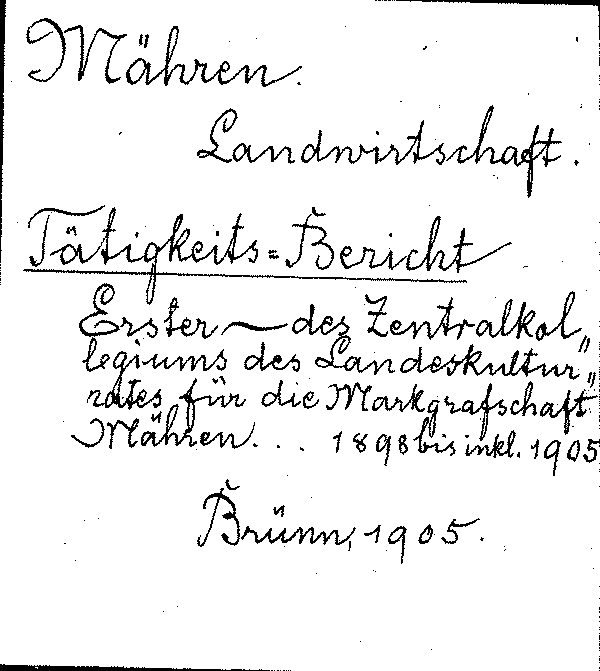 Mähren.
Landwirtschaft.
Tätigkeits=Bericht
Erster — des Zentralkol„
legiums des Landeskultur„
rates für die Markgrafschaft
Mähren. . . 1898 bis inkl. 1905
Brünn, 1905.